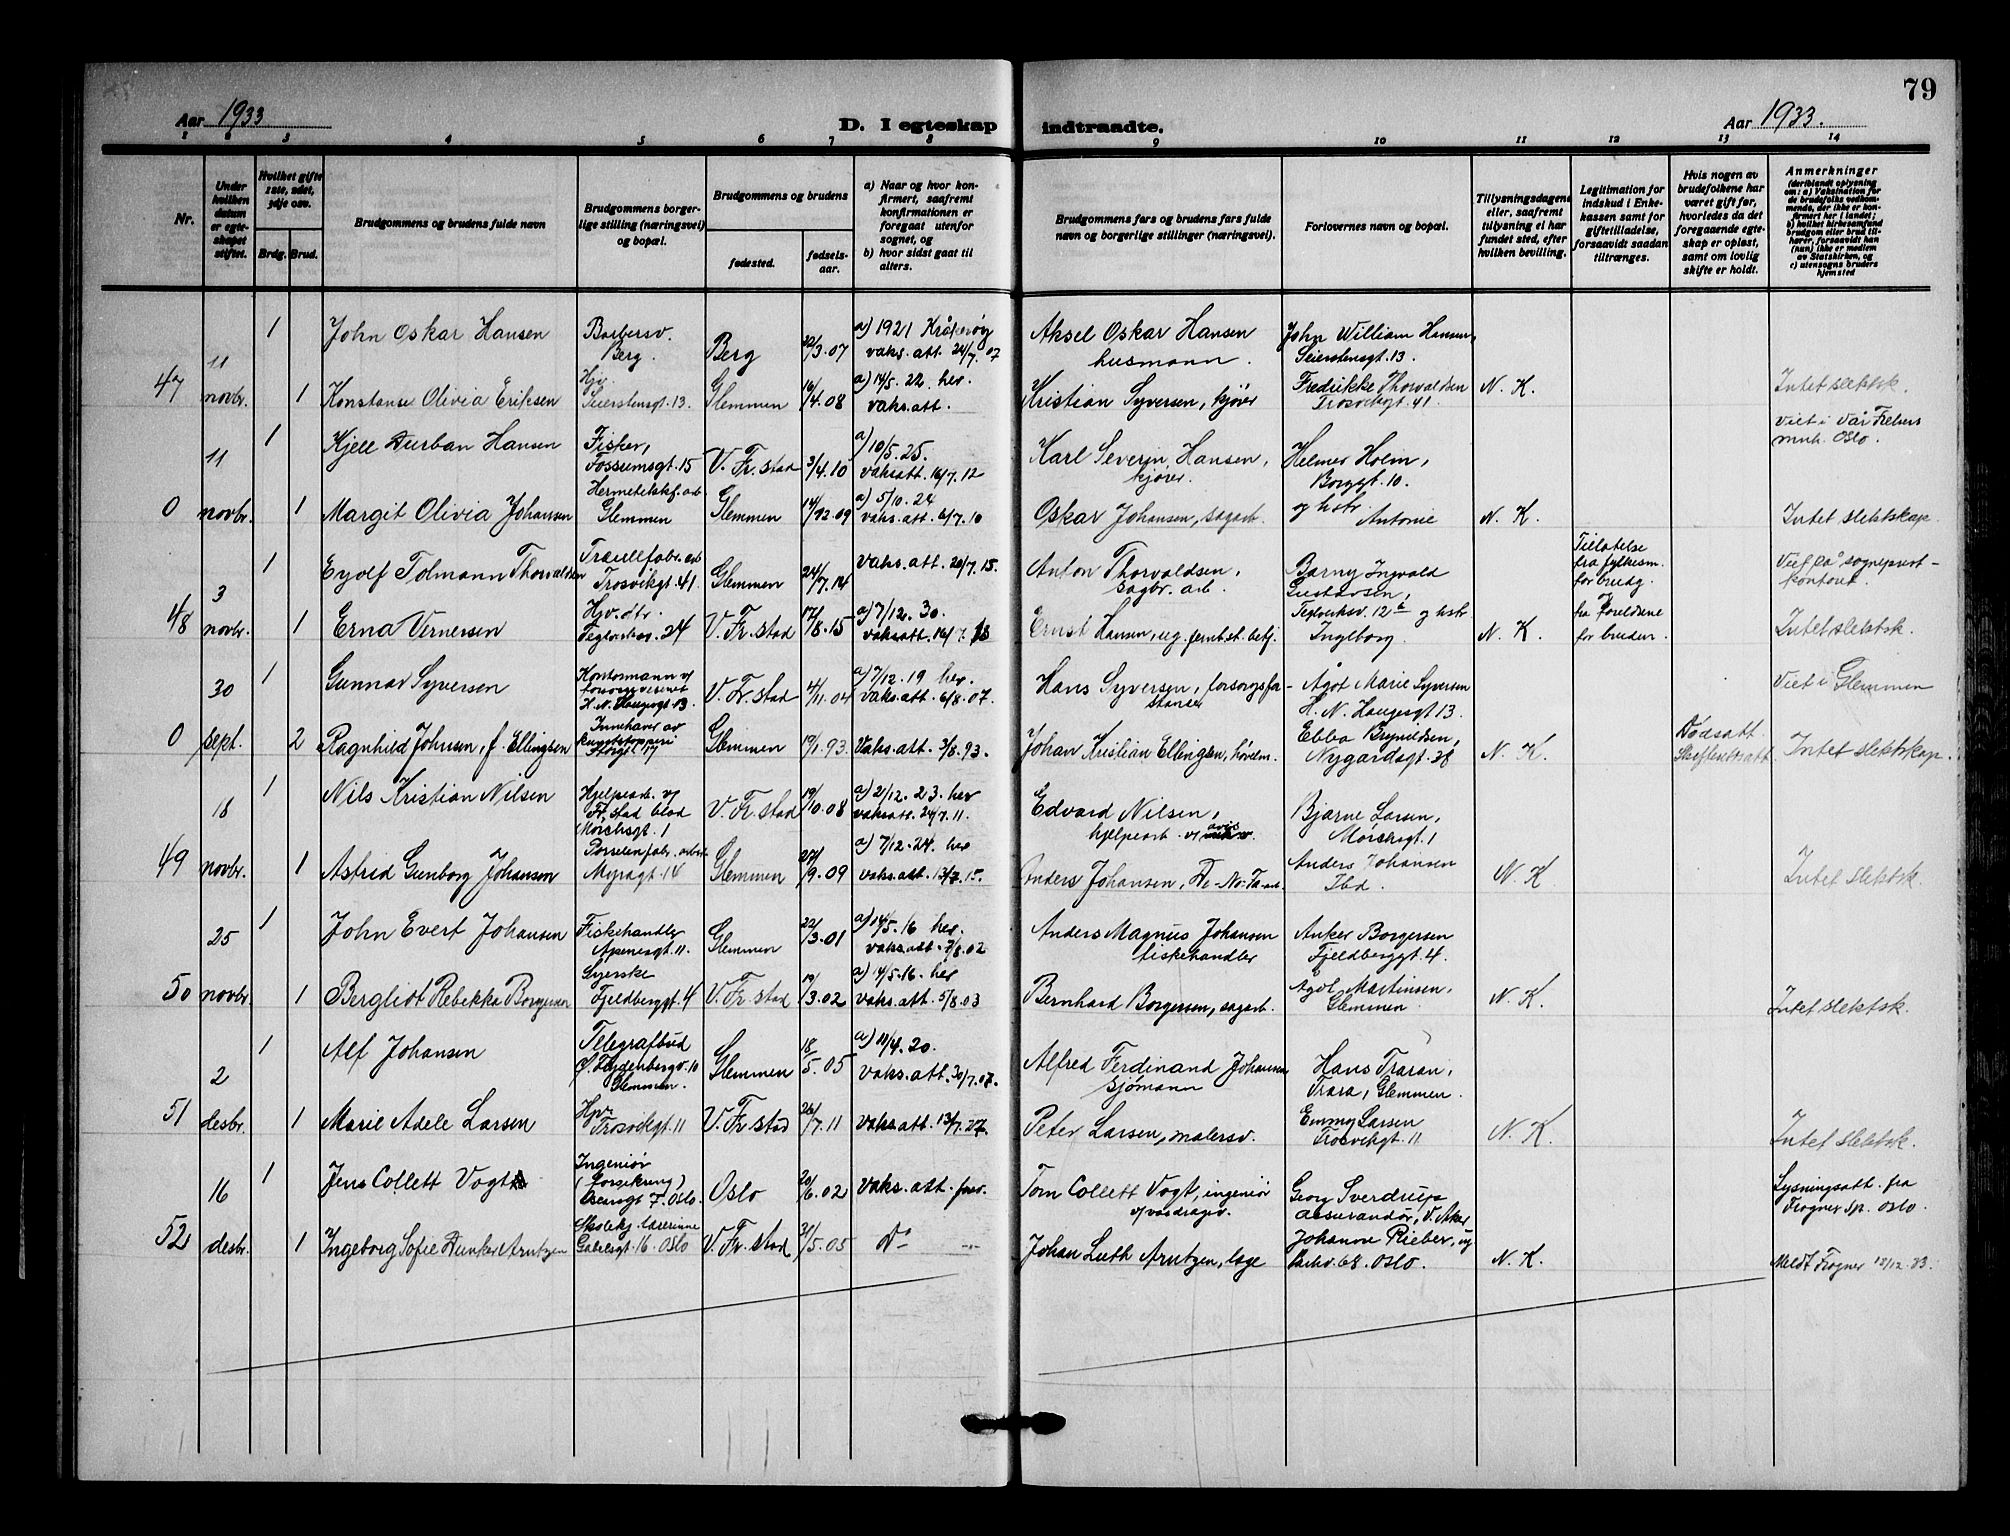 79
Aar 1933
D. I egteskap indtraadte.
Aar 1933.
1 2 3 4 5 6 7 8 9 10 11 12 13 14
Nr.
Under hvilken datum er egteskapet stiftet.
Hvilket gifte 1ste, 2det, 3dje osv.
Brdg. Brud.
Brudgommens og brudens fulde navn
Brudgommens borgerlige stilling (næringsvei) og bopæl.
Brudgommens og brudens
fødested.
fødselsaar.
a) Naar og hvor konfirmert, saafremt konfirmationen er foregaat utenfor sognet, og
b) hvor sidst gaat til alters.
Brudgommens fars og brudens fars fulde navn og borgerlige stillinger (næringsvei).
Forlovernes navn og bopæl.
Tillysningsdagene eller, saafremt tillysning ei har fundet sted, efter hvilken bevilling.
Legitimation for indskud i Enkekassen samt for giftetilladelse, forsaavidt saadan tiltrænges.
Hvis nogen av brudefolkene har været gift før, hvorledes da det foregaaende egteskap er opløst, samt om lovlig skifte er holdt.
Anmerkninger
(deriblandt oplysning om: a) Vaksination for de brudefolks vedkommende, der ikke er konfirmert her i landet;
b) hvilket kirkesamfund brudgom eller brud tilhører, forsaavidt han (hun) ikke er medlem av Statskirken, og
c) utensogns bruders hjemsted
1 John Oskar Hansen Barbersv. Berg. Berg 22/3.07 a) 1921 Kråkerøy vaks. att. 24/7.07 Aksel Oskar Hansen husmann. John William Hansen, Seierstensgt. 13.
47 11 novbr. 1 Konstanse Olivia Eriksen Hjv. Seierstensgt. 13 Glemmen 16/4.08 a) 14/5. 22. her. vaks. att. Kristian Syversen, kjører Fredrikke Thorvaldsen Trosvikgt. 41. N. K. Intet slektsk.
1 Kjell Durban Hansen Fisker, Fossumsgt. 15 V. Fr.stad 3/4.10 a) 10/5. 25. vaksatt. 16/7.12 Karl Severin Hansen, kjører. Helmer Holm, Borggt. 10. Viet i Vår Frelsers mnh. Oslo.
0 11 novbr. 1 Margit Olivia Johansen Hermetikkf. arb Glemmen Glemmen 14/12.09 a) 5/10. 24 vaks. att. 6/7.10 Oskar Johansen, sagarb. og hstr. Antonie N. K. Intet slektskap.
1 Eyolf Tolmann Thorvaldsen Træullfabr. arb Trosvikgt. 41 Glemmen 24/7.14 Vaks. att. 20/7.15. Anton Thorvaldsen, sagbr. arb. Barny Ingvald Gustavsen, Tillatelse fra fylkesm. for brudg. Viet på sogneprestkontoret.
48 3 novbr. 1 Erna Vernersen Hjv. dtr. 24 V. Fr.stad 17/8.15 a) 7/12. 30. vaksatt. 16/7. Ernst Hansen, Teglverksv. 12 og hstr Ingeborg. N. K. og fra foreldrene for bruden. Intet slektsk.
1 Gunnar Syversen Kontormann v/ forsorgsvesenet H. N. Haugesgt 13 V. Fr.stad 4/11.04 a) 7/12. 19 her. vaks. att. 6/8.07. Hans Syversen, forsorgsforstander Ågot Marie Syversen H. N. Haugesgt 13. Viet i Glemmen
0 30 sept. 2 Ragnhild Johnsen, f. Ellingsen Innehaver av kunststopperi Storgt. 17 Glemmen 19/1.93. Vaks. att. 3/8.93. Johan Kristian Ellingsen, høvelm. Ebba Brynildsen, Nygardsgt. 28 N. K. Dødsatt. Skifterettsatt. Intet slektskap.
1 Nils Kristian Nilsen Hjelpearb. v/ Fr.stad blad Mørchsgt. 1 V. Fr.stad 19/10.08 a) 2/12. 23. her vaksatt. 24/7.11. Edvard Nilsen, hjelpearb. v/ avis Bjarne Larsen, Mørchsgt. 1
49 18 novbr. 1 Astrid Gunborg Johansen Porselenfabr. arbeid. Myragt. 14 Glemmen 27/9.09 a) 7/12. 24. her vaks. att. 13/7.10. Anders Johansen, De-No-Fa-arb. Anders Johansen Ibd. N. K Intet slektsk.
1 John Evert Johansen Fiskehandler Apenesgt. 11. Glemmen 22/3.01 a) 14/5. 16 her. vaks. att. 7/8.02 Anders Magnus Johansen fiskehandler Anker Borgersen Fjeldberggt. 4.
50 25 novbr. 1 Bergliot Rebekka Borgersen Syerske Fjeldberggt. 4 V. Fr.stad 19/3.02 a) 14/5. 16. her vaks. att. 5/8.03 Bernhard Borgersen, sagarb. Ågot Martinsen, Glemmen. N. K. Intet slektsk.
1 Alf Johansen Telegrafbud Ø. Frydenbergv. 10 Glemmen. Glemmen 18/5.05 a) 11/4. 20. vaks. att. 30/7.07. Alfred Ferdinand Johansen sjømann Hans Traran, Trara, Glemmen.
51 2 desbr. 1 Marie Adele Larsen Hjv. Trosvikgt. 11 V. Fr.stad 26/7.11 vaks. att. 13/7.27. Peter Larsen, malersv. Emmy Larsen Trosvikgt. 11 N. K. Intet slektsk.
1 Jens Collett Vogt Ingeniør (forsikring) 7. Oslo Oslo 20/6.02 Vaks. att. Tom Collett Vogt, ingeniør v/ vasdragsv. Georg Sverdrup, assurandør, V. Aker Lysningsatt. fra Frogner sp. Oslo.
52 16 desbr. 1 Ingeborg Sofie Dunker Arntzen Skolekj. lærerinne Gabelsgt. 16. Oslo V. Fr.stad 31/5.05 do Johan Luth Arntzen, læge Johanne Rieber, Parkv. 68. Oslo. N. K. Meldt Frogner 18/12. 33.